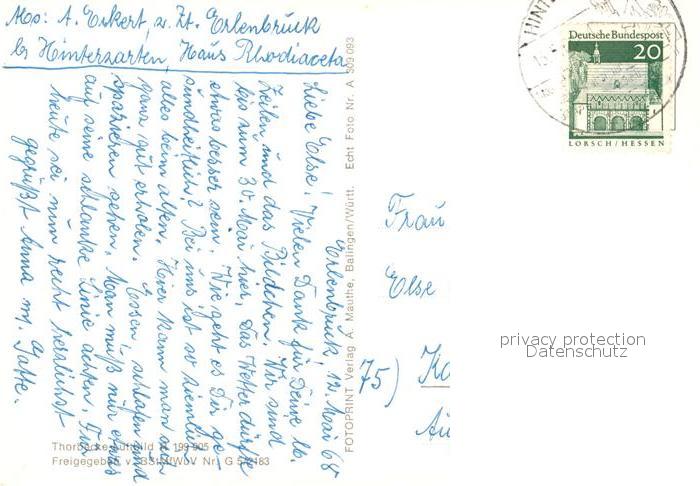 Abs: A. Eckert, z. Zt. Erlenbruck
b/ Hinterzarten, Haus Rhodiaceta
Erlenbruck 12. Mai 68
Liebe Else! Vielen Dank für Deine lb.
Zeilen und das Bildchen. Wir sind
bis zum 30. Mai hier. Das Wetter dürfte
etwas besser sein. Wie geht es Dir ge-
sundheitlich? Bei uns ist so ziemlich
alles beim alten. Hier kann man sich
ganz gut erholen. Essen, schlafen und
spazieren gehen. Man muß nur etwas
auf seine schlanke Linie achten. Für
heute sei nun recht herzlichst
gegrüßt Anna m. Gatte.
FOTOPRINT Verlag A. Mauthe, Balingen/Württ. Echt Foto Nr. A 309 093
Thorbecke-Luftbild 199 905
Freigegeben v. Nr. G 5/2183
HINT
Deutsche Bundespost
20
LORSCH/HESSEN
Frau
Else
75)
privacy protection
Datenschutz